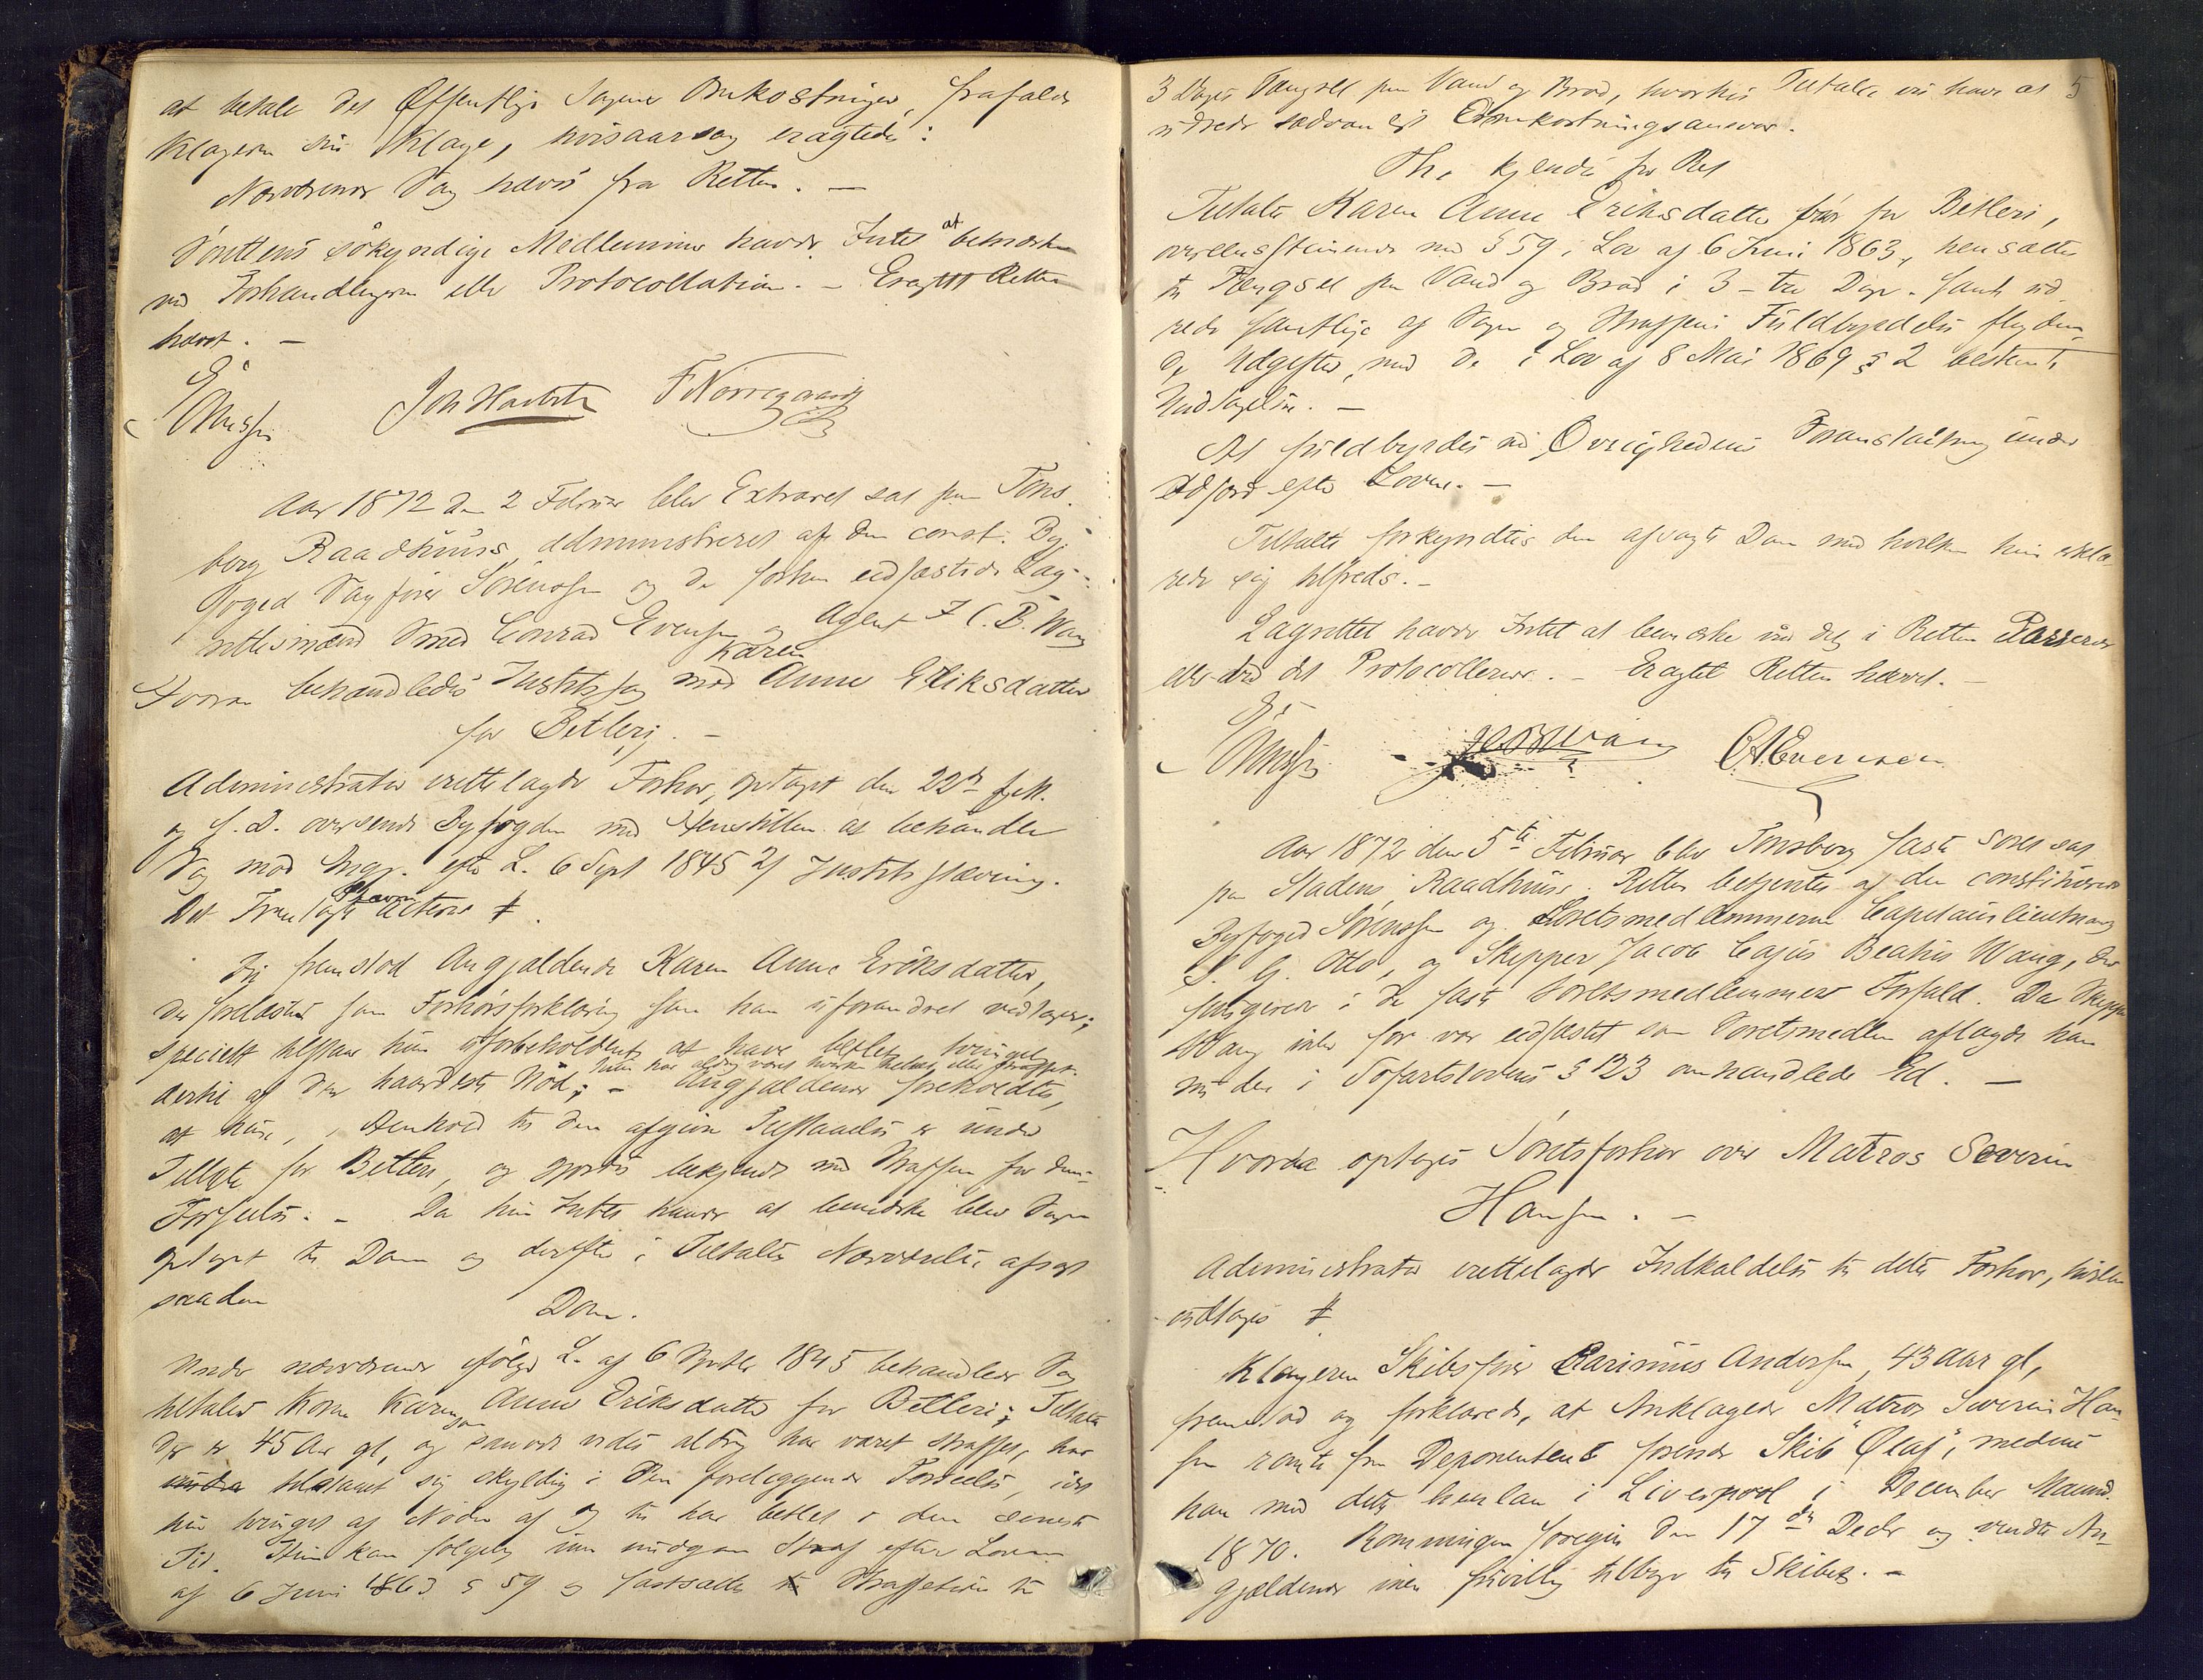 at betale det Offentlige Sagens Omkostninger, frafaldt
Klageren sin Klage, hvisaarsag eragtedes:
Nærværende Sag hæves fra Retten. —
Sørettens søkyndige Medlemmer havde Intet at bemærke
ved Forhandlingen eller Protocollationen. – Eragtet Retten
hævet. –
Joh Haerbest F Nørregaard
Aar 1872 den 2 Februar blev Extraret sat paa Tøns
berg Raadhuus, administreret af den const. By
foged Sagfører Sørenssen og de forhen eedfæstede Lag-
rettesmænd Smed Conrad Evensen og Agent J. C. B. Wang
Hvorda behandledes Justitssag mod Karen Anne Eriksdatter
for Betleri. –
Administrator rettelagde Forhør, optaget den 22de f. M.
og s. D. oversendt Byfogden med Henstillen at behandle
Sag mod Angj. efter L. 6 Sept 1845 2/ Justits stævning.
Det Fremlagte acteres ‡.
fremstod Angjældende Karen Anne Eriksdatter,
der forelæstes sin Forhørsforklaring som hun uforandret vedtager;
specielt tilstaar hun uforbeholdent at have betlet tvungen
hun har aldrig været hverken tiltalt eller straffet.
dertil af den haardeste Nød; – Angjældende foreholdtes,
at hun, i Henhold til den afgivne Tilstaaelse er under
Tiltale for Betleri, og gjordes bekjendt med Straffen for denne
Forseelse. – Da hun Intet havde at bemærke blev Sagen
optaget til Dom og derefter i Tiltaltes Nærværelse afsagt
saadan
Dom.
Under nærværende ifølge L. af 6 Septbr 1845 behandlede Sag
tiltales Kone Karen Anne Eriksdatter for Betleri; Tiltalte
der er 45 Aar gl, og saavidt vides aldrig har været straffet, har
tilstaaet sig skyldig i den foreliggende Forseelse, idet
hun tvunget af Nøden af og til har betlet i den seneste
Tid. Hun kan følgelig inu undgaa Straf efter Loven
af 6 Juni 1863 § 59 og fastsættes Straffetiden til
5
3 Dages Fængsel paa Vand og Brød, hvorhos Tiltalte vil have at
udrede sædvanligt Omkostningsansvar.
Thi kjendes for Ret
Tiltalte Karen Anne Eriksdatter bør for Betleri,
overeensstemmende med § 59 i Lov af 6 Juni 1863, hensættes
til Fængsel paa Vand og Brød i 3 – tre Dage. samt ud
rede samtlige af Sagen og Straffens Fuldbyrdelse flyden
de Udgifter, med de i Lov af 8 Mai 1869 § 2 bestemte
Undtagelser. –
At fuldbyrdes ved Øvrighedens Foranstaltning under
Adfærd efter Loven. –
Tiltalte forkyndtes den afsagte Dom med hvilken hun erklæ
rede sig tilfreds. –
Lagrettet havde Intet at bemærke ved det i Retten Passerede
eller ved det Protocollerede. – Eragtet Retten hævet. –
JCBWang CAEvensen
Aar 1872 den 5te Februar blev Tønsberg faste Søret sat
paa Stadens Raadhuus. Retten betjentes af den constituerede
Byfoged Sørenssen og Søretsmedlemmerne Capitainlieutnant
S. G. Otto, og Skipper Jacob Cajus Beatus Wang, der
fungerer i de faste Søretsmedlemmers Forfald. Da Skipper
Wang ikke før var eedfæstet som Søretsmedlem aflagde han
nu den i Søfartslovens § 123 omhandlede Ed. –
Hvorda optoges Søretsforhør over Matros Severin
Hansen. –
Administrator rettelagde Indkaldelse til dette Forhør, hvilken
indtages ‡
Klageren Skibsfører Carinius Andersen, 43 Aar gl,
fremstod og forklarede, at Anklagede Matros Severin Han
sen rømte fra Deponentens førende Skib "Olaf", medens
han med dette henlaa i Liverpool i December Maaned
1870. Rømningen foregik den 17de Decbr og vendte An
gjældende ikke frivillig tilbage til Skibet. –